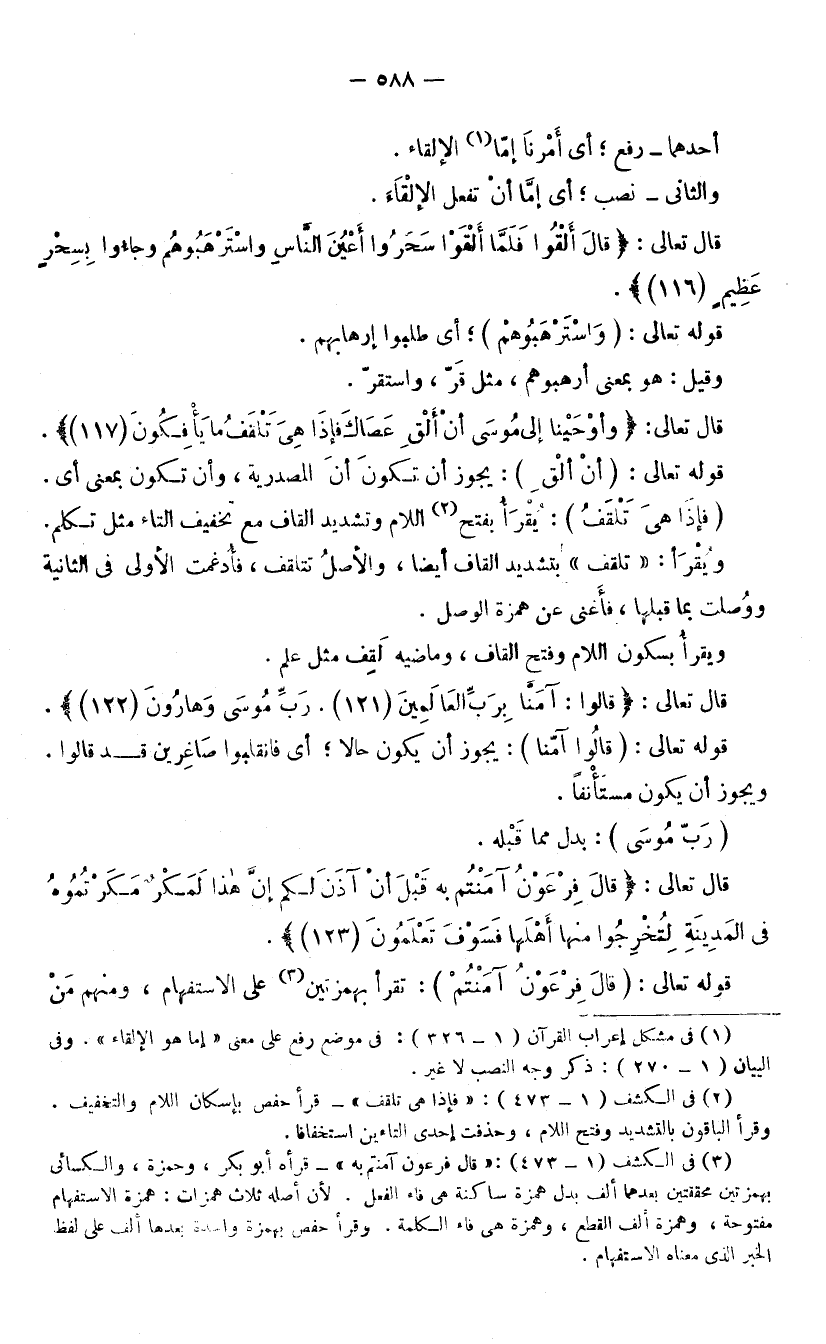 — ٥٨٨ —
أحدهما ــ رفع ؛ أى أَمْرنَا إمّا(١) الإلقاء .
والثانى ــ نصب ؛ أى إمَّا أنْ تفعل الإلْقَاءَ .
قال تعالى : ﴿ قالَ أَلْقُوا فَلَمَّا أَلْقَوْا سَحَرُوا أَعْيُنَ النَّاسِ واسْتَرْهَبُوهُم وجاءوا بِسِحْرٍ
عَظِيمٍ (١١٦) ﴾ .
قوله تعالى : ( وَاسْتَرْهَبُوهمْ ) ؛ أى طلبوا إرهابهم .
وقيل : هو بمعنى أرهبوهم ، مثل قَرّ ، واستقرّ .
قال تعالى: ﴿ وأوْحَيْنا إلى مُوسَى أنْ أَلْقِ عَصَاكَ فإذَا هِىَ تَلْقَفُ ما يَأْفِكُونَ (١١٧) ﴾ .
قوله تعالى : ( أنْ ألقِ ) : يجوز أن تكونَ أنْ المصدرية ، وأن تكون بمعنى أى .
( فإذَا هىَ تَلْقَفُ ) : يُقْرَأ بفتح(٢) اللام وتشديد القاف مع تخفيف التاء مثل تكلم.
ويُقْرَأ : « تلقف » بتشديد القاف أيضا ، والأصلُ تتلقف ، فأُدغمت الأولى فى الثانية
ووُصلت بما قبلها ، فأَغنى عن همزة الوصل .
ويقرأُ بسكون اللام وفتح القاف ، وماضيه لَقِف مثل علم .
قال تعالى : ﴿ قالوا : آمَنَّا بِرَبِّ العَالَمِينَ (١٢١) . رَبِّ مُوسَى وَهارُونَ (١٢٢) ﴾ .
قوله تعالى : ( قالُوا آمّنا ) : يجوز أن يكون حالا ؛ أى فانقلبوا صَاغِرين قد قالوا .
ويجوز أن يكون مستَأْنفاً .
( رَبّ مُوسَى ) : بدل مما قَبْله .
قال تعالى : ﴿ قالَ فِرْعَوْنُ آمَنْتُم به قَبْلَ أنْ آذَنَ لكم إنَّ هٰذا لَمَكْرٌ مَكَرْتُمُوهُ
فى المَدِينَةِ لِتُخْرِجُوا منها أَهْلَها فَسَوْفَ تَعْلَمُونَ (١٢٣) ﴾ .
قوله تعالى : ( قالَ فِرْعَوْنُ آمَنْتُمْ ) : تقرأ بهمزتين(٣) على الاستفهام ، ومنهم مَنْ
(١) فى مشكل إعراب القرآن ( ١ ــ ٣٢٦ ) : فى موضع رفع على معنى « إما هو الإلقاء » . وفى
البيان ( ١ ــ ٢٧٠ ) : ذكر وجه النصب لا غير .
(٢) فى الكشف ( ١ ــ ٤٧٣ ) : « فإذا هى تلقف » ــ قرأ حفص بإسكان اللام والتخفيف .
وقرأ الباقون بالتشديد وفتح اللام ، وحذفت إحدى التاءين استخفافا .
(٣) فى الكشف (١ ــ ٤٧٣) : « قال فرعون آمنتم به » ــ قرأه أبو بكر ، وحمزة ، والكسائى
بهمزتين محققتين بعدهما ألف بدل همزة ساكنة هى فاء الفعل . لأن أصله ثلاث همزات : همزة الاستفهام
مفتوحة ، وهمزة ألف القطع ، وهمزة هى فاء الكلمة . وقرأ حفص بهمزة واحدة بعدها ألف على لفظ
الخبر الذى معناه الاستفهام .